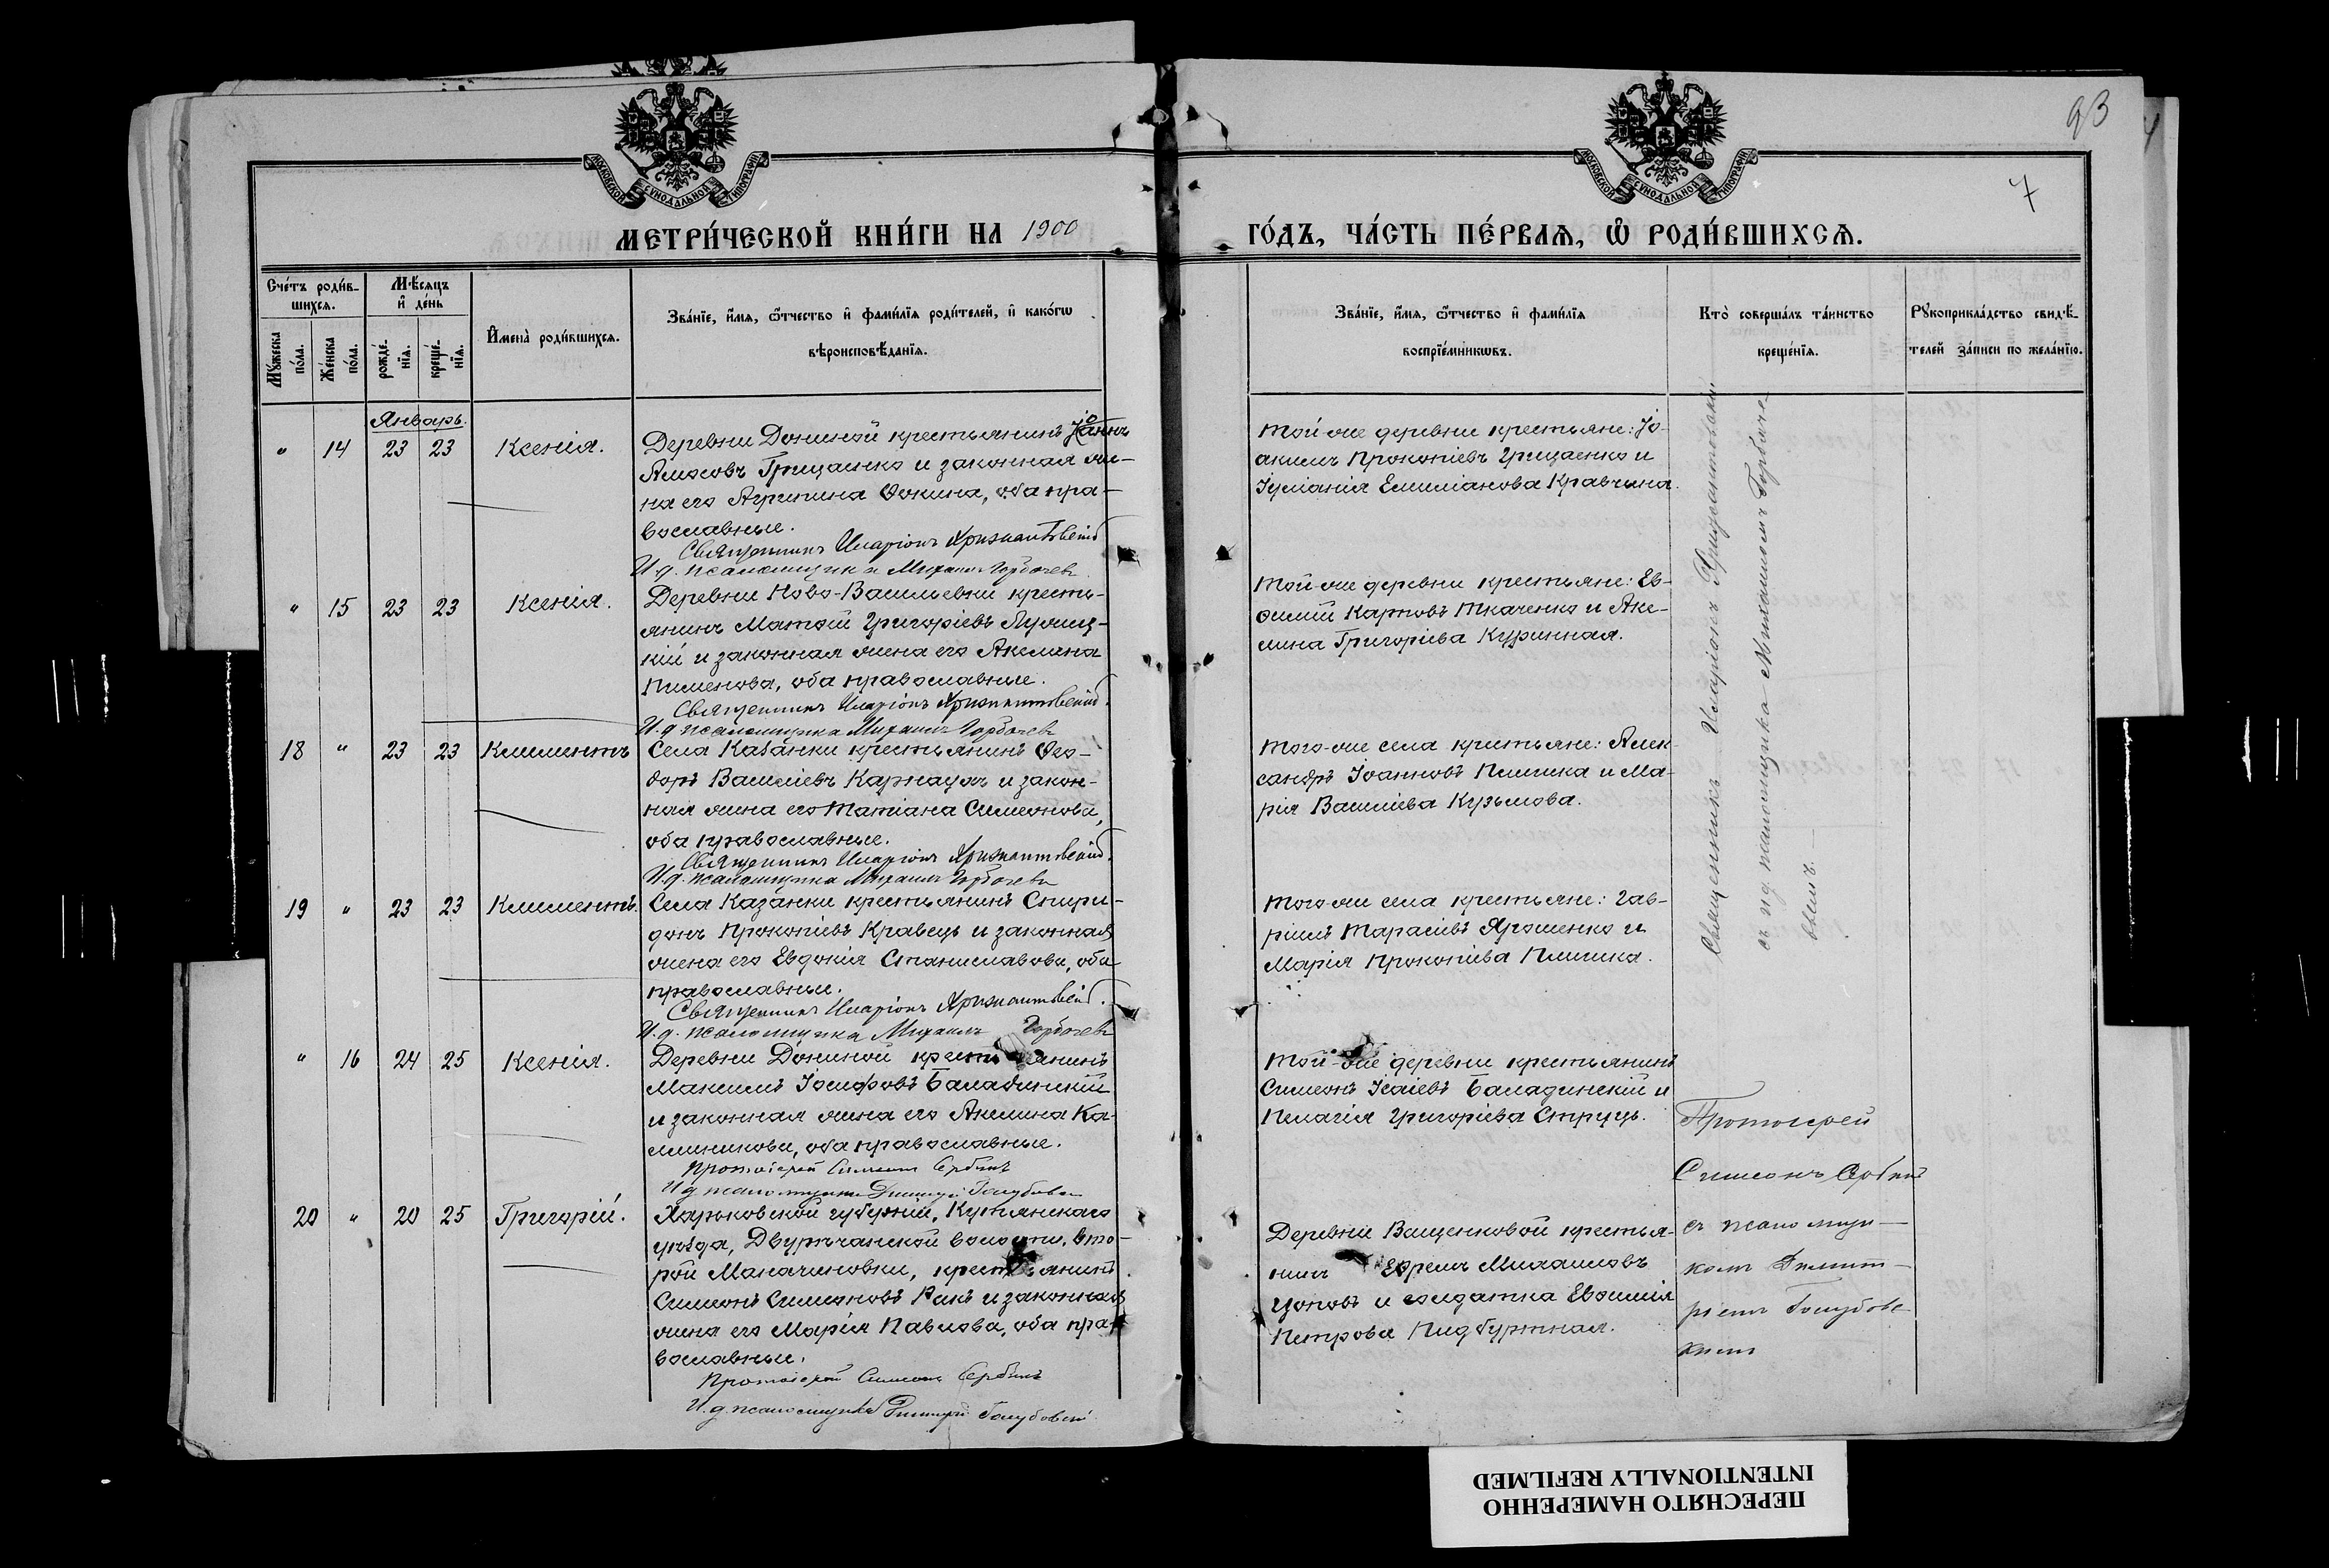 93
7
МОСКОВСКОЙ СѴНОДАЛЬНОЙ ТИПОГРАФІИ
МОСКОВСКОЙ СѴНОДАЛЬНОЙ ТИПОГРАФІИ
МЕТРИ́ЧЕСКОЙ КНИ́ГИ НА 1900
ГО́ДЪ, ЧА́СТЬ ПЕ́РВАЯ, Ѽ РОДИ́ВШИХСЯ.
Сче́тъ роди́в-
шихся.
Мѣ́сяцъ
и҆ де́нь
Мꙋ́жеска
по́ла.
Же́нска
по́ла.
рожде́-
нїѧ.
креще́-
нїѧ.
И҆мена̀ роди́вшихся.
Зва́нїе, и҆́мя, ѻ҆́тчество и҆ фами́лїя роди́телей, и҆ како́гѡ
вѣроисповѣ́данїя.
Зва́нїе, и҆́мя, ѻ҆́тчество и҆ фами́лїя
воспрїе́мникѡвъ.
Кто̀ соверша́лъ та́инство
креще́нїя.
Рꙋкоприкла́дство свидѣ́-
телей за́писи по жела́нїю.
Январь.
" 14 23 23 Ксенія.
Деревни Дониной крестьянинъ Іоаннъ
Амосовъ Грищенко и законная же-
на его Агрипина Фокина, оба пра-
вославные.
Священникъ Иларіонъ Хризантовскій
И. д. псаломщика Михаилъ Горбачевъ
Той-же деревни крестьяне: Іо-
акимъ Прокопіевъ Грищенко и
Іуліанія Емиліанова Кравчина.
" 15 23 23 Ксенія.
Деревни Ново-Васильевки кресть-
янинъ Матѳій Григоріевъ
кій и законная жена его Акилина
Пименова, оба православные.
Священникъ Иларіонъ Хризантовскій.
И. д. псаломщика Михаилъ Горбачевъ
Той-же деревни крестьяне: Ев-
ѳимій Карповъ Ткаченко и Аки-
лина Григоріева Куринная.
18 " 23 23 Климентъ
Села Казанки крестьянинъ Ѳео-
доръ Василіевъ Карнаухъ и закон-
ная жена его Татіана Симеонова,
оба православные.
Священникъ Иларіонъ Хризантовскій.
И. д. псаломщика Михаилъ Горбачевъ
Того-же села крестьяне: Алек-
сандръ Іоанновъ Пшинка и Ма-
рія Василіева Кузьмова.
19 " 23 23 Климентъ.
Села Казанки крестьянинъ Спири-
донъ Прокопіевъ Кравецъ и законная
жена его Евдокія Станиславова, оба
православные.
Священникъ Иларіонъ Хризантовскій.
И. д. псаломщика Михаилъ Горбачевъ
Того-же села крестьяне: Гав-
ріилъ Тарасіевъ Ярошенко и
Марія Прокопіева Пшинка.
Священникъ Иларіонъ Хризантовскій
съ и. д. псаломщика Михаиломъ Горбаче-
вымъ.
" 16 24 25 Ксенія.
Деревни Дониной крестьянинъ
Максимъ Іосифовъ Баладинскій
и законная жена его Акилина Ка-
линикова, оба православные.
Протоіерей Симеонъ Сербинъ
И. д. псаломщика Димитрій Голубовскій
Той-же деревни крестьянинъ
Симеонъ Ісаіевъ Баладинскій и
Пелагія Григоріева Струць.
20 " 20 25 Григорій.
Харьковской губерніи, Купянскаго
уѣзда, Двурѣчанской волости, вто-
рой Маначиновки, крестьянинъ
Симеонъ Симеоновъ Ракъ и законная
жена его Марія Павлова, оба пра-
вославные.
Протоіерей Симеонъ Сербинъ
И. д. псаломщика Димитрій Голубовскій
Деревни Ващенковой крестья-
нинъ Ефремъ Михаиловъ
Цоповъ и солдатка Евфимія
Петрова Пидбуртная.
Протоіерей
Симеонъ Сербинъ
съ псаломщи-
комъ Димит-
ріемъ Голубовс-
кимъ
ПЕРЕСНЯТО НАМЕРЕННО
INTENTIONALLY REFILMED